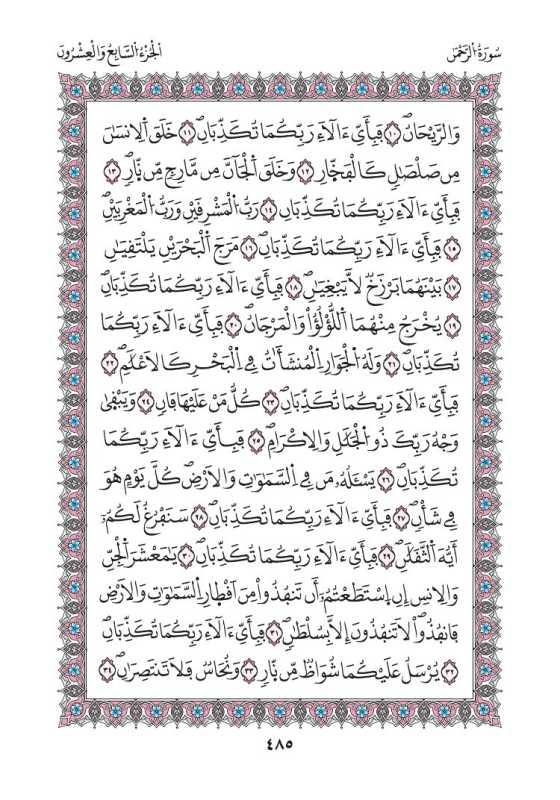 سُورَةُ الرَّحْمَٰن
الْجُزْءُ السَّابِعُ وَالْعِشْرُونَ
وَالرَّيْحَانُ ١٠ فَبِأَيِّ ءَالَآءِ رَبِّكُمَا تُكَذِّبَانِ ١١ خَلَقَ اَلِانسَٰنَ
مِن صَلْصَٰلٖ كَالْفَخّ۪ارِ ١٢ وَخَلَقَ اَلْجَآنَّ مِن مَّارِجٖ مِّن نّ۪ارٖ ١٣
فَبِأَيِّ ءَالَآءِ رَبِّكُمَا تُكَذِّبَانِ ١٤ رَبُّ الْمَشْرِقَيْنِ وَرَبُّ الْمَغْرِبَيْنِ
١٥ فَبِأَيِّ ءَالَآءِ رَبِّكُمَا تُكَذِّبَانِ ١٦ مَرَجَ اَلْبَحْرَيْنِ يَلْتَقِيَٰنِ
١٧ بَيْنَهُمَا بَرْزَخٞ لَّا يَبْغِيَٰنِ ١٨ فَبِأَيِّ ءَالَآءِ رَبِّكُمَا تُكَذِّبَانِ
١٩ يُخْرَجُ مِنْهُمَا اَللُّؤْلُؤُاْ وَالْمَرْجَانُ ٢٠ فَبِأَيِّ ءَالَآءِ رَبِّكُمَا
تُكَذِّبَانِ ٢١ وَلَهُ اُلْجَوَارِ اِلْمُنشَـَٔاتُ فِے اِلْبَحْرِ كَالَاعْلَٰمِ ٢٢
فَبِأَيِّ ءَالَآءِ رَبِّكُمَا تُكَذِّبَانِ ٢٣ كُلُّ مَنْ عَلَيْهَا فَانٖ ٢٤ وَيَبْق۪يٰ
وَجْهُ رَبِّكَ ذُو اُلْجَلَٰلِ وَالِاكْرَامِ ٢٥ فَبِأَيِّ ءَالَآءِ رَبِّكُمَا
تُكَذِّبَانِ ٢٦ يَسْـَٔلُهُۥ مَن فِے اِلسَّمَٰوَٰتِ وَالَارْضِ كُلَّ يَوْمٍ هُوَ
فِے شَأْنٖ ٢٧ فَبِأَيِّ ءَالَآءِ رَبِّكُمَا تُكَذِّبَانِ ٢٨ سَنَفْرُغُ لَكُمُۥٓ
أَيُّهَ اَلثَّقَلَٰنِ ٢٩ فَبِأَيِّ ءَالَآءِ رَبِّكُمَا تُكَذِّبَانِ ٣٠ يَٰمَعْشَرَ اَلْجِنِّ
وَالِانسِ إِنِ اِسْتَطَعْتُمُۥٓ أَن تَنفُذُواْ مِنَ اَقْط۪ارِ اِلسَّمَٰوَٰتِ وَالَارْضِ
فَانفُذُواْ لَا تَنفُذُونَ إِلَّا بِسُلْطَٰنٖ ٣١ فَبِأَيِّ ءَالَآءِ رَبِّكُمَا تُكَذِّبَانِ
٣٢ يُرْسَلُ عَلَيْكُمَا شُوَاظٞ مِّن نّ۪ارٖ ٣٣ وَنُحَاسٞ فَلَا تَنتَصِرَانِ ٣٤
٤٨٥